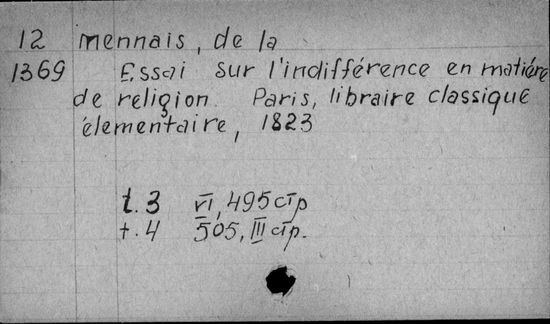 12 mennais, de la
1369 Essai sur l'indifférence en matiére
de religion. Paris, libraire classique
élementaire, 1823
t.3 VI, 495 cтр
t.4 505, III cтр.